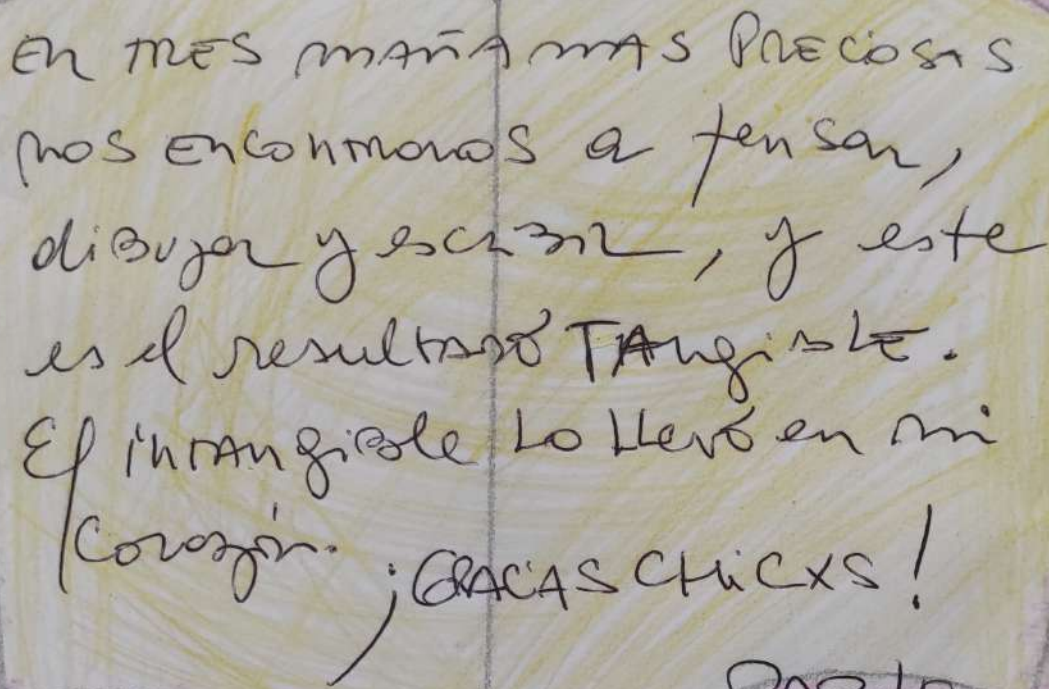 En TRES MAÑANAS PRECIOSAS
nos EnConTRAMOS a pensar,
diBujar y escriBiR, y este
es el resultado TAngiBLE.
El inTAngiBle Lo LLevo en mi
Corazón. ¡GRACIAS CHiCXS!